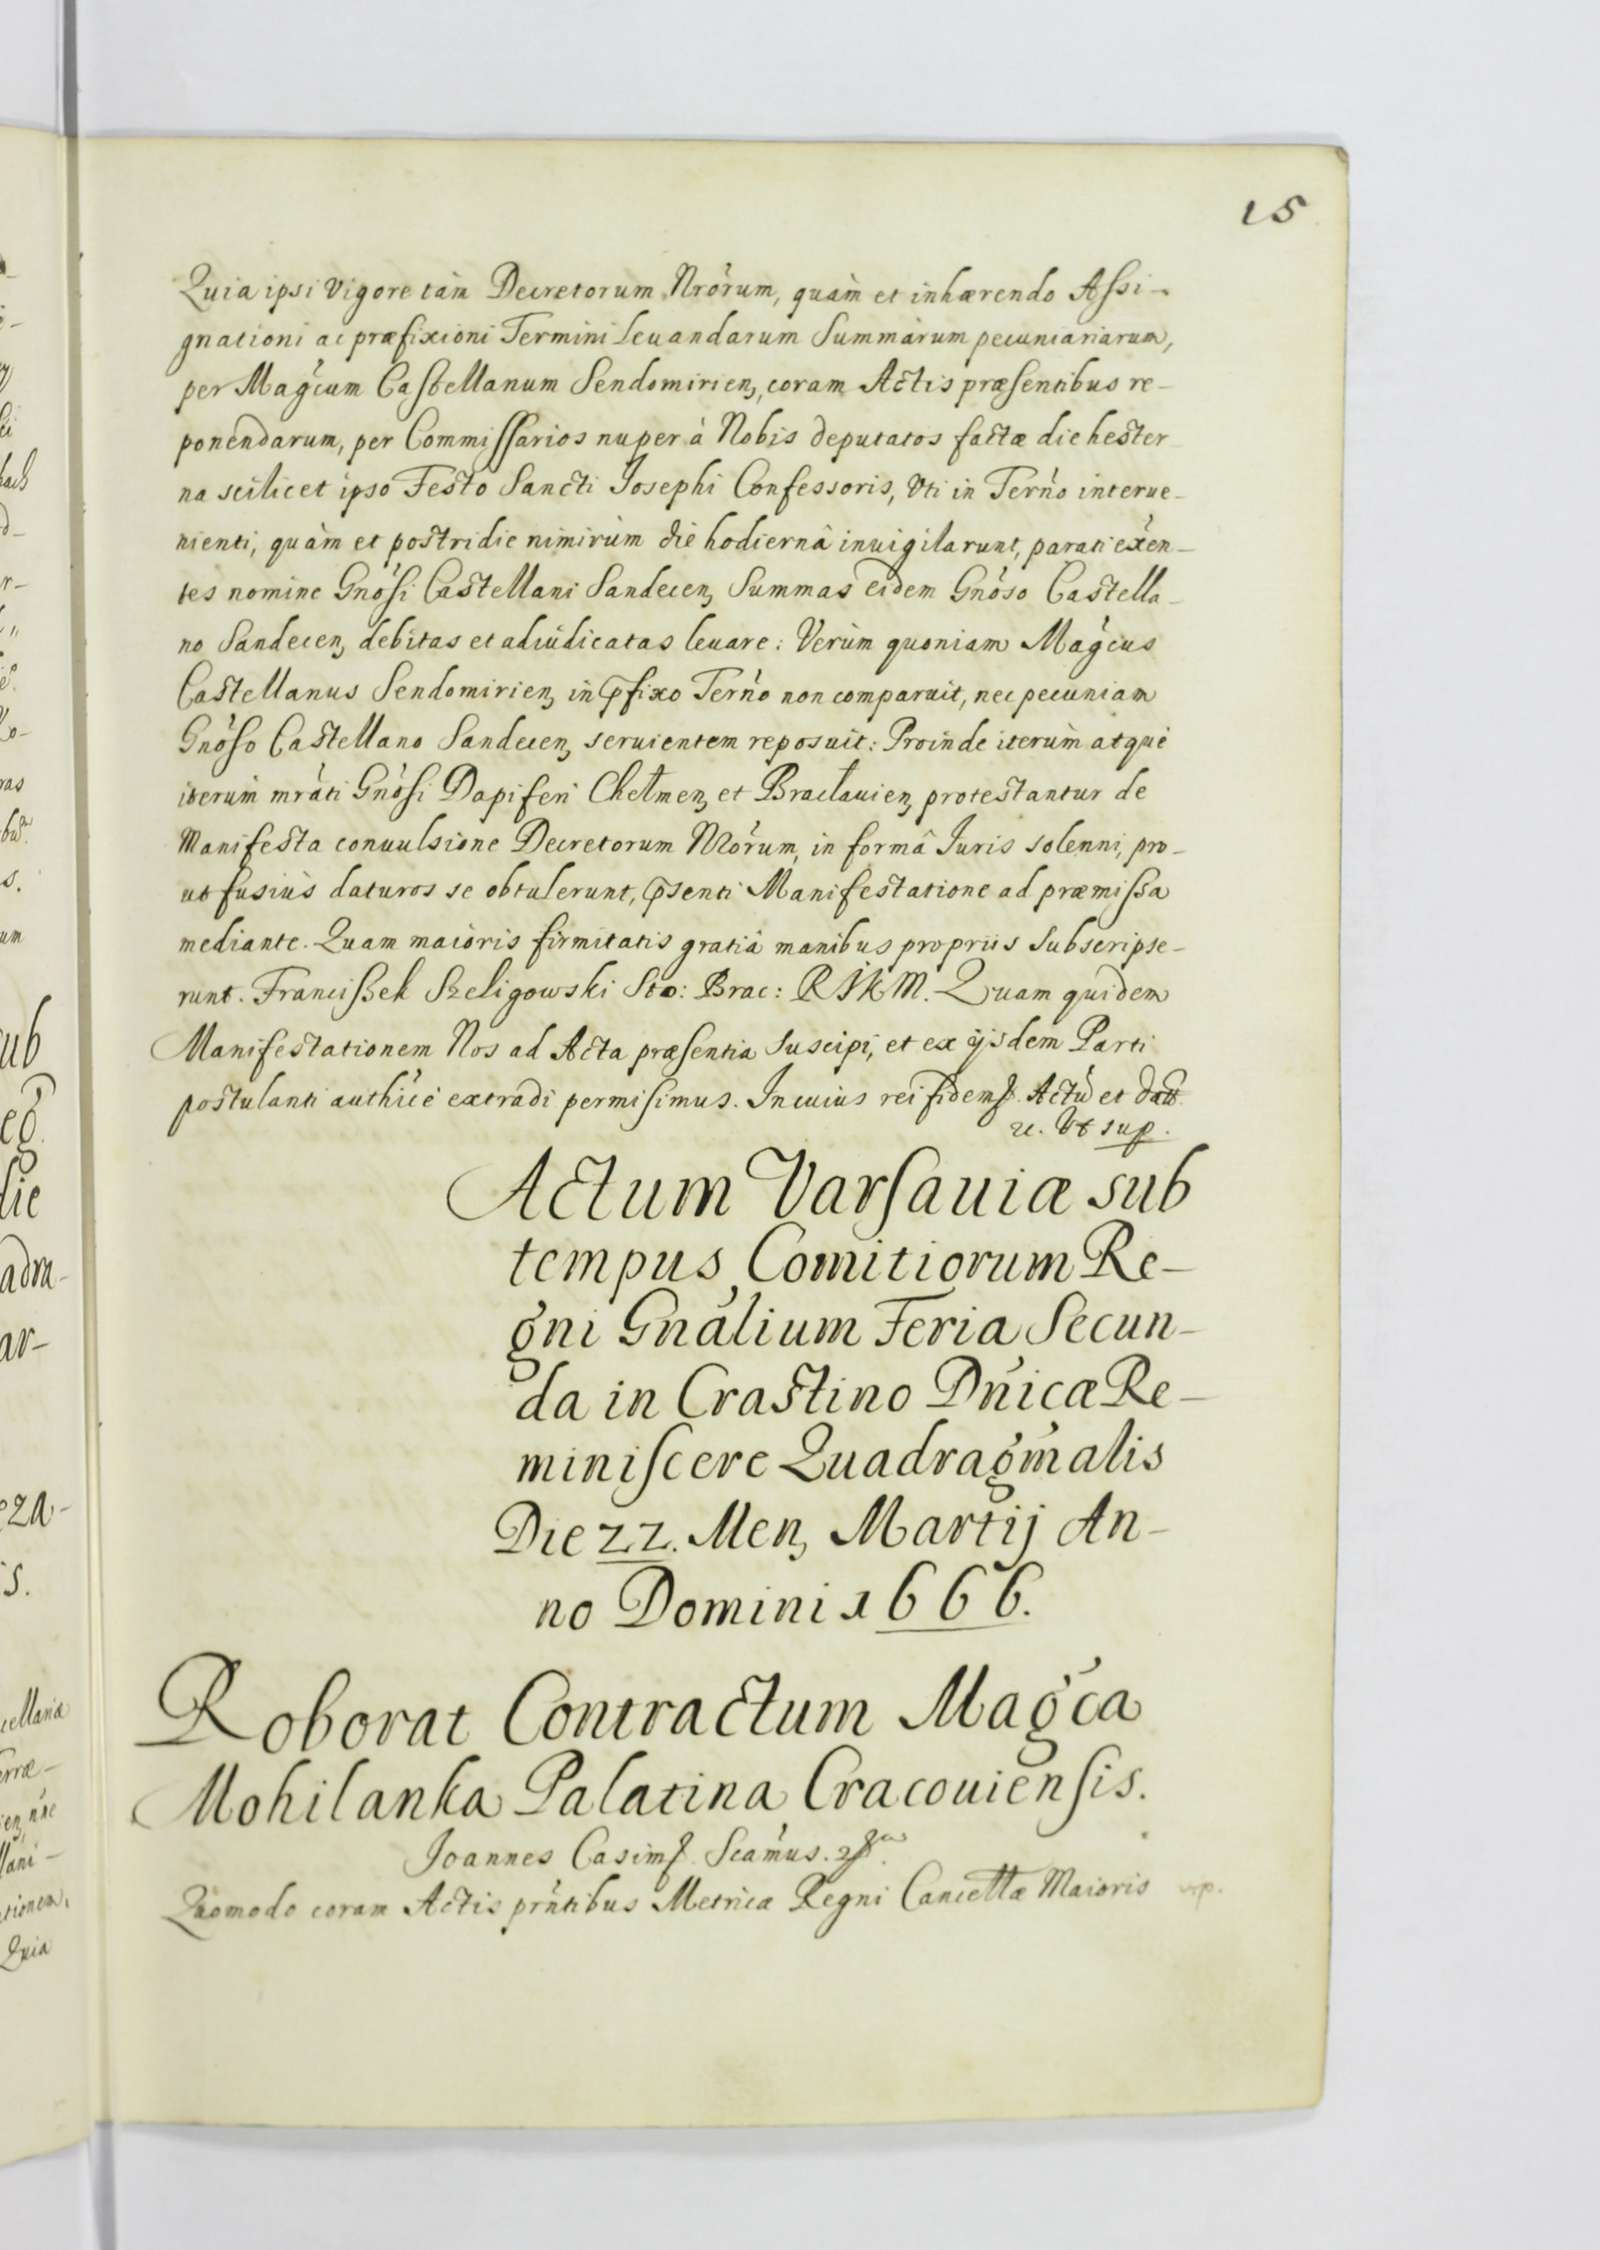 15
Quia ipsi vigore tàm Decretorum Nrórum, quàm et inhærendo Assi-
gnationi ac præfixioni Termini levandarum Summarum pecuniariarum,
per Magcum Castellanum Sendomirien, coram Actis præsentibus re-
ponendarum, per Commissarios nuper à Nobis deputatos factæ die hester
na scilicet ipso Festo Sancti Josephi Confessoris, Vti in Terno interue-
nienti, quàm et postridie nimirùm die hodiernâ inuigilarunt, parati exen-
tes nomine Gnosi Castellani Sandecen, Summas eidem Gnoso Castella-
no Sandecen, debitas et adiudicatas leuare: Verùm quoniam Magcus
Castellanus Sendomirien, in pfixo Terno non comparuit, nec pecuniam
Gnoso Castellano Sandecen, seruientem reposuit: Proinde iterùm atque
iterum mrati Gnosi Dapiferi Chełmen, et Bracłauien, protestantur de
Manifesta conuulsione Decretorum Nrorum, in formâ Juris solenni, pro-
ut fusius daturos se obtulerunt, psenti Manifestatione ad præmissa
mediante. Quam maioris firmitatis gratiâ manibus propriis subscripse-
runt. Franciszek Szeligowski Sto: Brac: RJKM. Quam quidem
Manifestationem Nos ad Acta præsentia suscipi, et ex ijsdem Parti
postulanti authce extradi permisimus. In cuius rei fidem. Actu et datt
Vt sup.
Actum Varsauiæ sub
tempus Comitiorum Re-
gni Gnalium Feria Secun-
da in Crastino Dnicæ Re-
miniscere Quadragmalis
Die 22. Men, Martij An-
no Domini 1666.
Roborat Contractum Magca
Mohilanka Palatina Cracouiensis.
Joannes Casim. Scamus.
Quomodo coram Actis prntibus Metricæ Regni Cancellæ Maioris